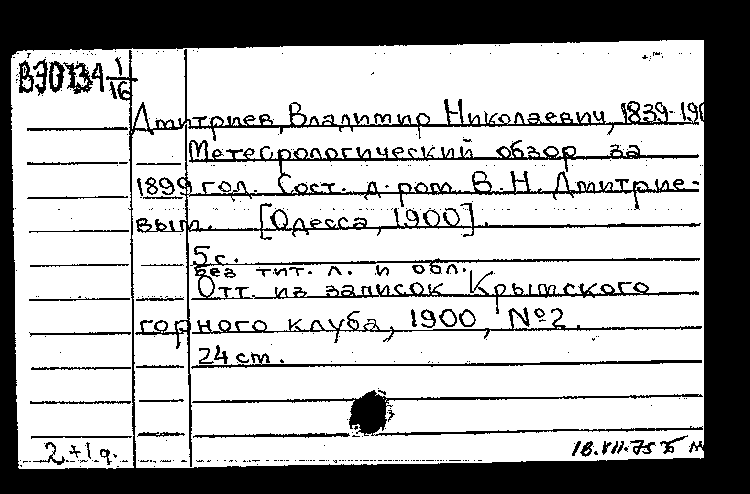 В90134 1/16
Дмитриев, Владимир Николаевич, 1839-190
Метеорологический обзор за
1899 год. Сост. д-ром В. Н. Дмитрие-
вым. [Одесса, 1900].
5 с.
Без тит. л. и обл.
Отт. из записок Крымского
горного клуба, 1900, №2.
24 см.
2+1 д.
18.VII.75